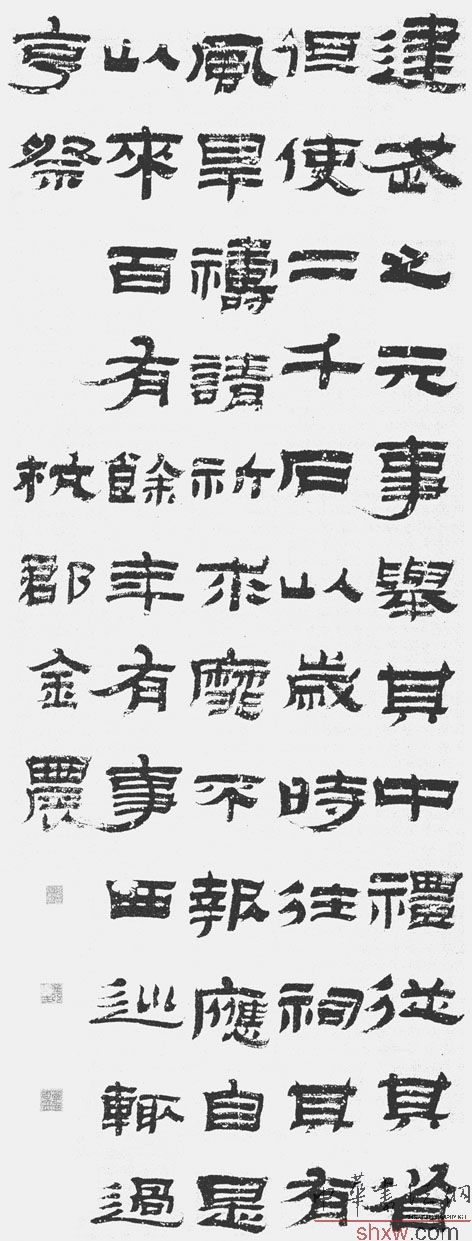 建武之元事舉其中禮從其省
但使二千石以歲時往祠其有
風旱禱請祈求靡不報應自是
以來百有餘年有事西巡輒過
亨祭 杭郡金農
shxw.com